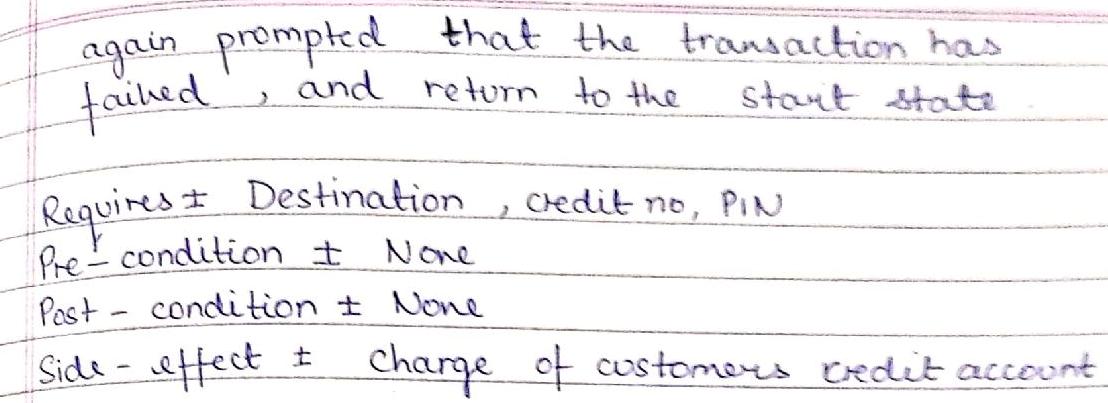 again prompted that the transaction has
failed , and return to the start state
Requires ± Destination , credit no, PIN
Pre - condition ± None
Post - condition ± None
Side - effect ± Charge of customers credit account